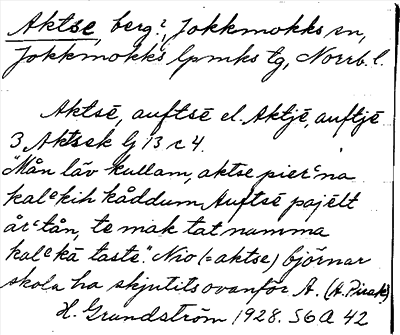 Aktse, berg?, Jokkmokks sn,
Jokkmokks lpmks tg, Norrb. l.
Aktsē, auftsē el. Aktjē, auftjē
3 Aktsek Lj 13 c 4.
"Mån läv kullam, aktse pierᶜna
kalᵉkih kåddum, Auftsē pajēlt
årᶜtån, te mak tat namma
kalᵉkā tastē." Nio (= aktse) björnar
skola ha skjutits ovanför A. (A. Pirak)
H. Grundström 1928. S6A 42